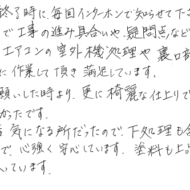 終了時に、毎回インターホンで知らせて下さ
で工事の進み具合いや、疑問点など
エアコンの室外機処理や裏口
に作業して頂き満足しています。
願いした時より、更に綺麗な仕上りで
かったです。
気になる所だったので、下処理も
で、心強く安心しています。塗料も上品
いています。